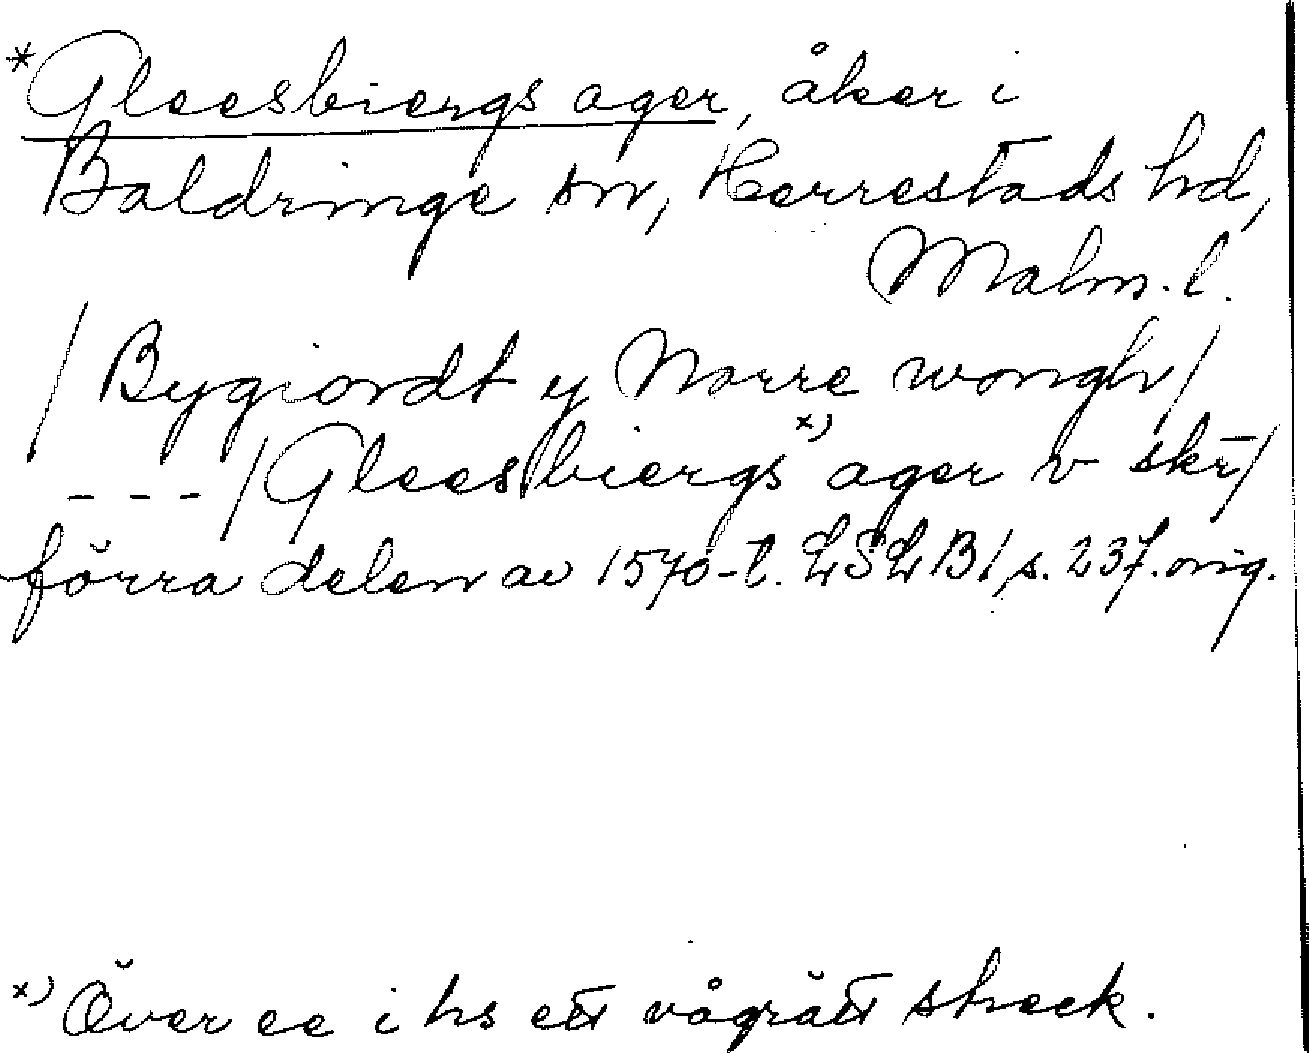 *Gleesbiergs ager, åker i
Baldringe sn, Herrestads hd,
Malm. l.
/Bygiordt y Norre wongh/
--- /Gleesbiergs x) ager v skr/
förra delen av 1570-t. LSLB1, s. 237. orig.
x) Över ee i hs ett vågrätt streck.